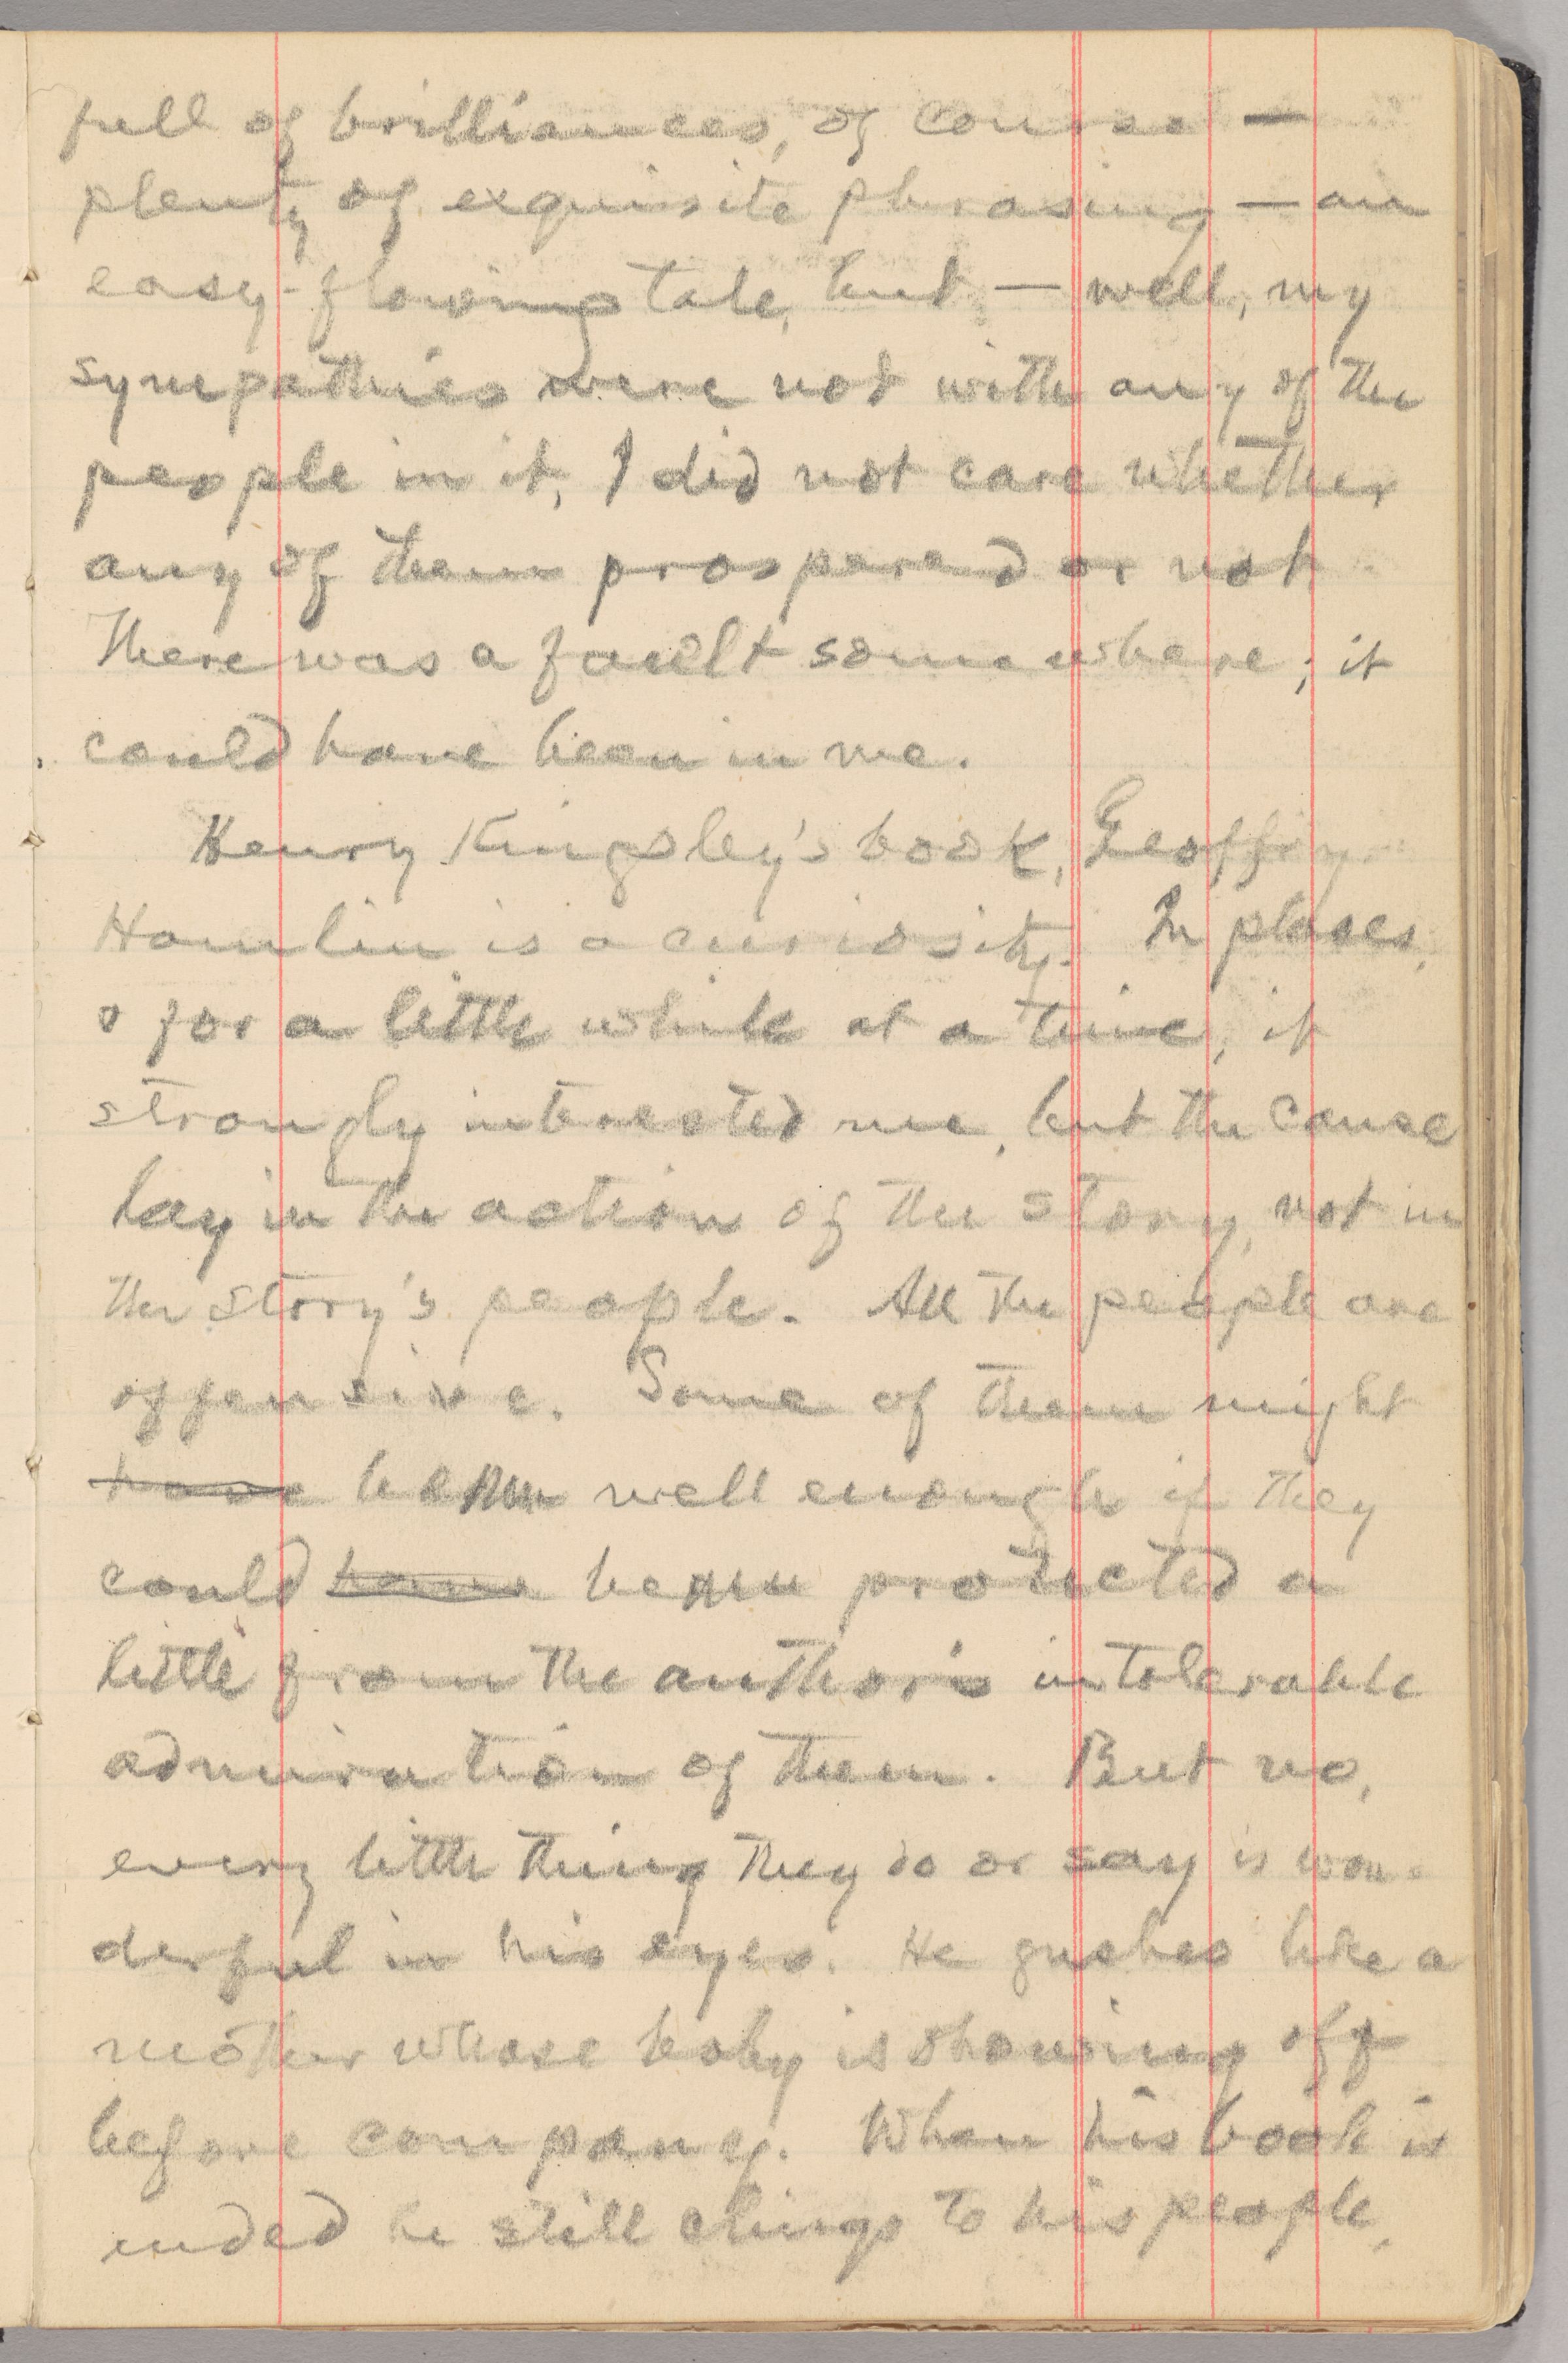 full of brilliances, of course —
plenty of exquisite phrasing — an
easy-flowing tale, but — well, my
sympathies were not with any of the
people in it, I did not care whether
any of them prospered or not.
There was a fault somewhere; it
could have been in me.
Henry Kingsley's book, Geoffry
Hamlin is a curiosity. In places,
& for a little while at a time, it
strongly interested me, but the cause
lay in the action of the story, not in
the story's people. All the people are
offensive. Some of them might
have be well enough if they
could have be protected a
little from the author's intolerable
admiration of them. But no,
every little thing they do or say is won-
derful in his eyes. He gushes like a
mother whose baby is showing off
before company. When his book is
ended he still clings to his people,